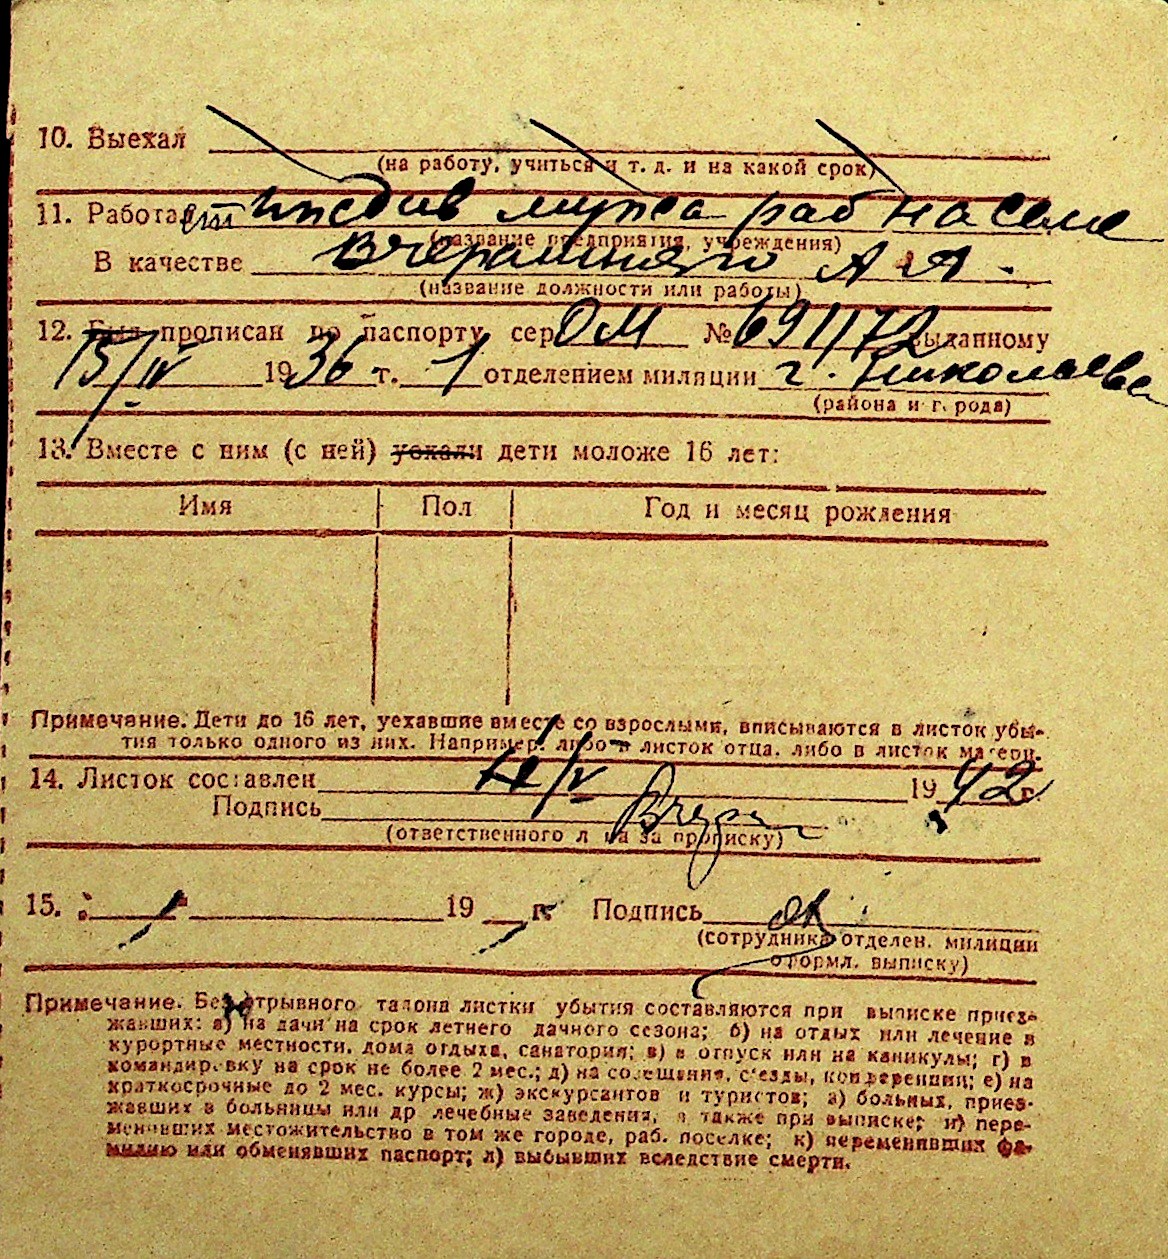 10. Выехал
(на работу, учиться и т. д. и на какой срок)
11. Работа
мужа раб на селе
(название предприятия, учреждения)
В качестве А Я.
(название должности или работы)
12. Был прописан по паспорту сер ОМ № 691172 выданному
15/IV 1936 г. 1 отделением милиции г. Николаева
(района и города)
13. Вместе с ним (с ней) уехали дети моложе 16 лет:
Имя Пол Год и месяц рождения
Примечание. Дети до 16 лет, уехавшие вместе со взрослыми, вписываются в листок убы-
тия только одного из них. Например: либо в листок отца, либо в листок матери.
14. Листок составлен 1942 г.
Подпись
(ответственного лица за прописку)
15. 19 г. Подпись
(сотрудника отделен. милиции
оформл. выписку)
Примечание. Без отрывного талона листки убытия составляются при выписке приез-
жавших: а) на дачи на срок летнего дачного сезона; б) на отдых или лечение в
курортные местности, дома отдыха, санатория; в) в отпуск или на каникулы; г) в
командировку на срок не более 2 мес.; д) на совещания, съезды, конференции; е) на
краткосрочные до 2 мес. курсы; ж) экскурсантов и туристов; з) больных, приез-
жавших в больницы или др лечебные заведения, а также при выписке; и) пере-
менивших местожительство в том же городе, раб. поселке; к) переменивших фа-
милию или обменявших паспорт; л) выбывших вследствие смерти.